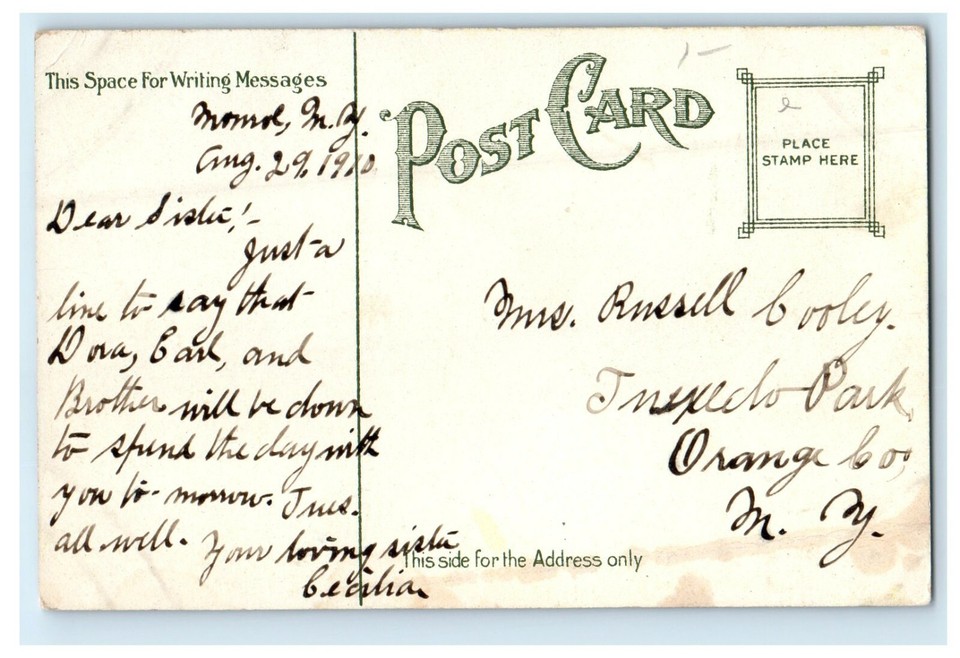 This Space For Writing Messages
Monroe, N.Y.
Aug. 29, 1910
Dear Sister!-
Just a
line to say that
Dora, Earl, and
Brother will be down
to spend the day with
you to-morrow. Tues.
all well. Your loving sister
Cecilia
POST CARD
PLACE
STAMP HERE
Mrs. Russell Cooley.
Tuxedo Park,
Orange Co.
N. Y.
This side for the Address only